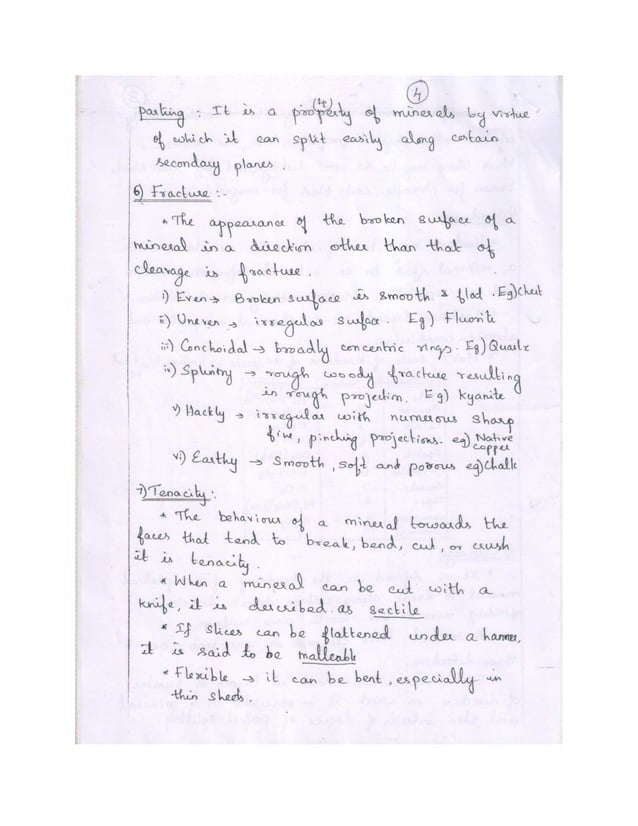 4
parting : It is a property of minerals by virtue
of which it can split easily along certain
secondary planes.
6) Fracture :-
* The appearance of the broken surface of a
mineral in a direction other than that of
cleavage is fracture.
i) Even → Broken surface is smooth & flad. Eg) Chert
ii) Uneven → irregular surface. Eg) Fluorite
iii) Conchoidal → broadly concentric rings. Eg) Quartz
iv) Splintry → rough woody fracture resulting
in rough projection. Eg) Kyanite
v) Hackly → irregular with numerous sharp
fine, pinching projections. eg) Native
copper
vi) Earthy → Smooth, soft and porous eg) Chalk
7) Tenacity :-
* The behaviour of a mineral towards the
faces that tend to break, bend, cut, or crush
it is tenacity.
* When a mineral can be cut with a
knife, it is described as sectile
* If slices can be flattened under a hammer,
it is said to be malleable
* Flexible → it can be bent, especially in
thin sheets.